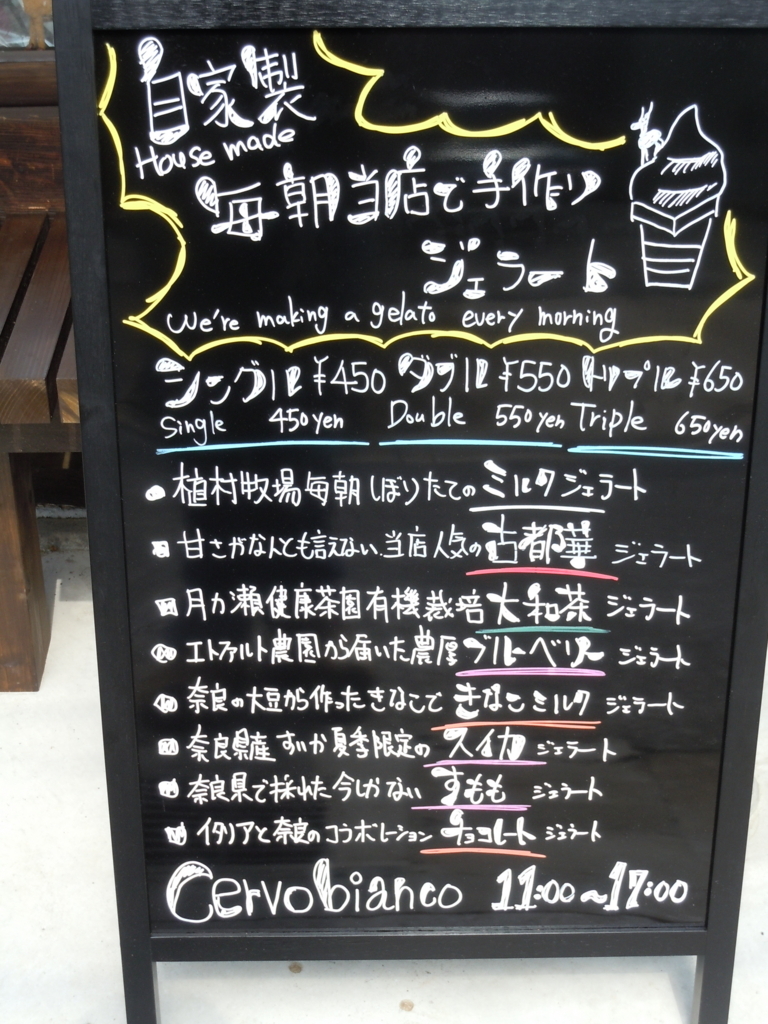 自家製
House made
毎朝当店で手作り
ジェラート
We're making a gelato every morning
シングル ¥450 ダブル ¥550 トリプル ¥650
Single 450yen Double 550yen Triple 650yen
植村牧場毎朝しぼりたてのミルクジェラート
甘さがなんとも言えない、当店人気の古都華 ジェラート
月ヶ瀬健康茶園有機栽培大和茶 ジェラート
エトファルト農園から届いた農厚ブルーベリー ジェラート
奈良の大豆から作ったきなこで きなこミルク ジェラート
奈良県産すいか夏季限定の スイカ ジェラート
奈良県で採れた今しかない すもも ジェラート
イタリアと奈良のコラボレーション チョコレート ジェラート
Cervo bianco 11:00~17:00